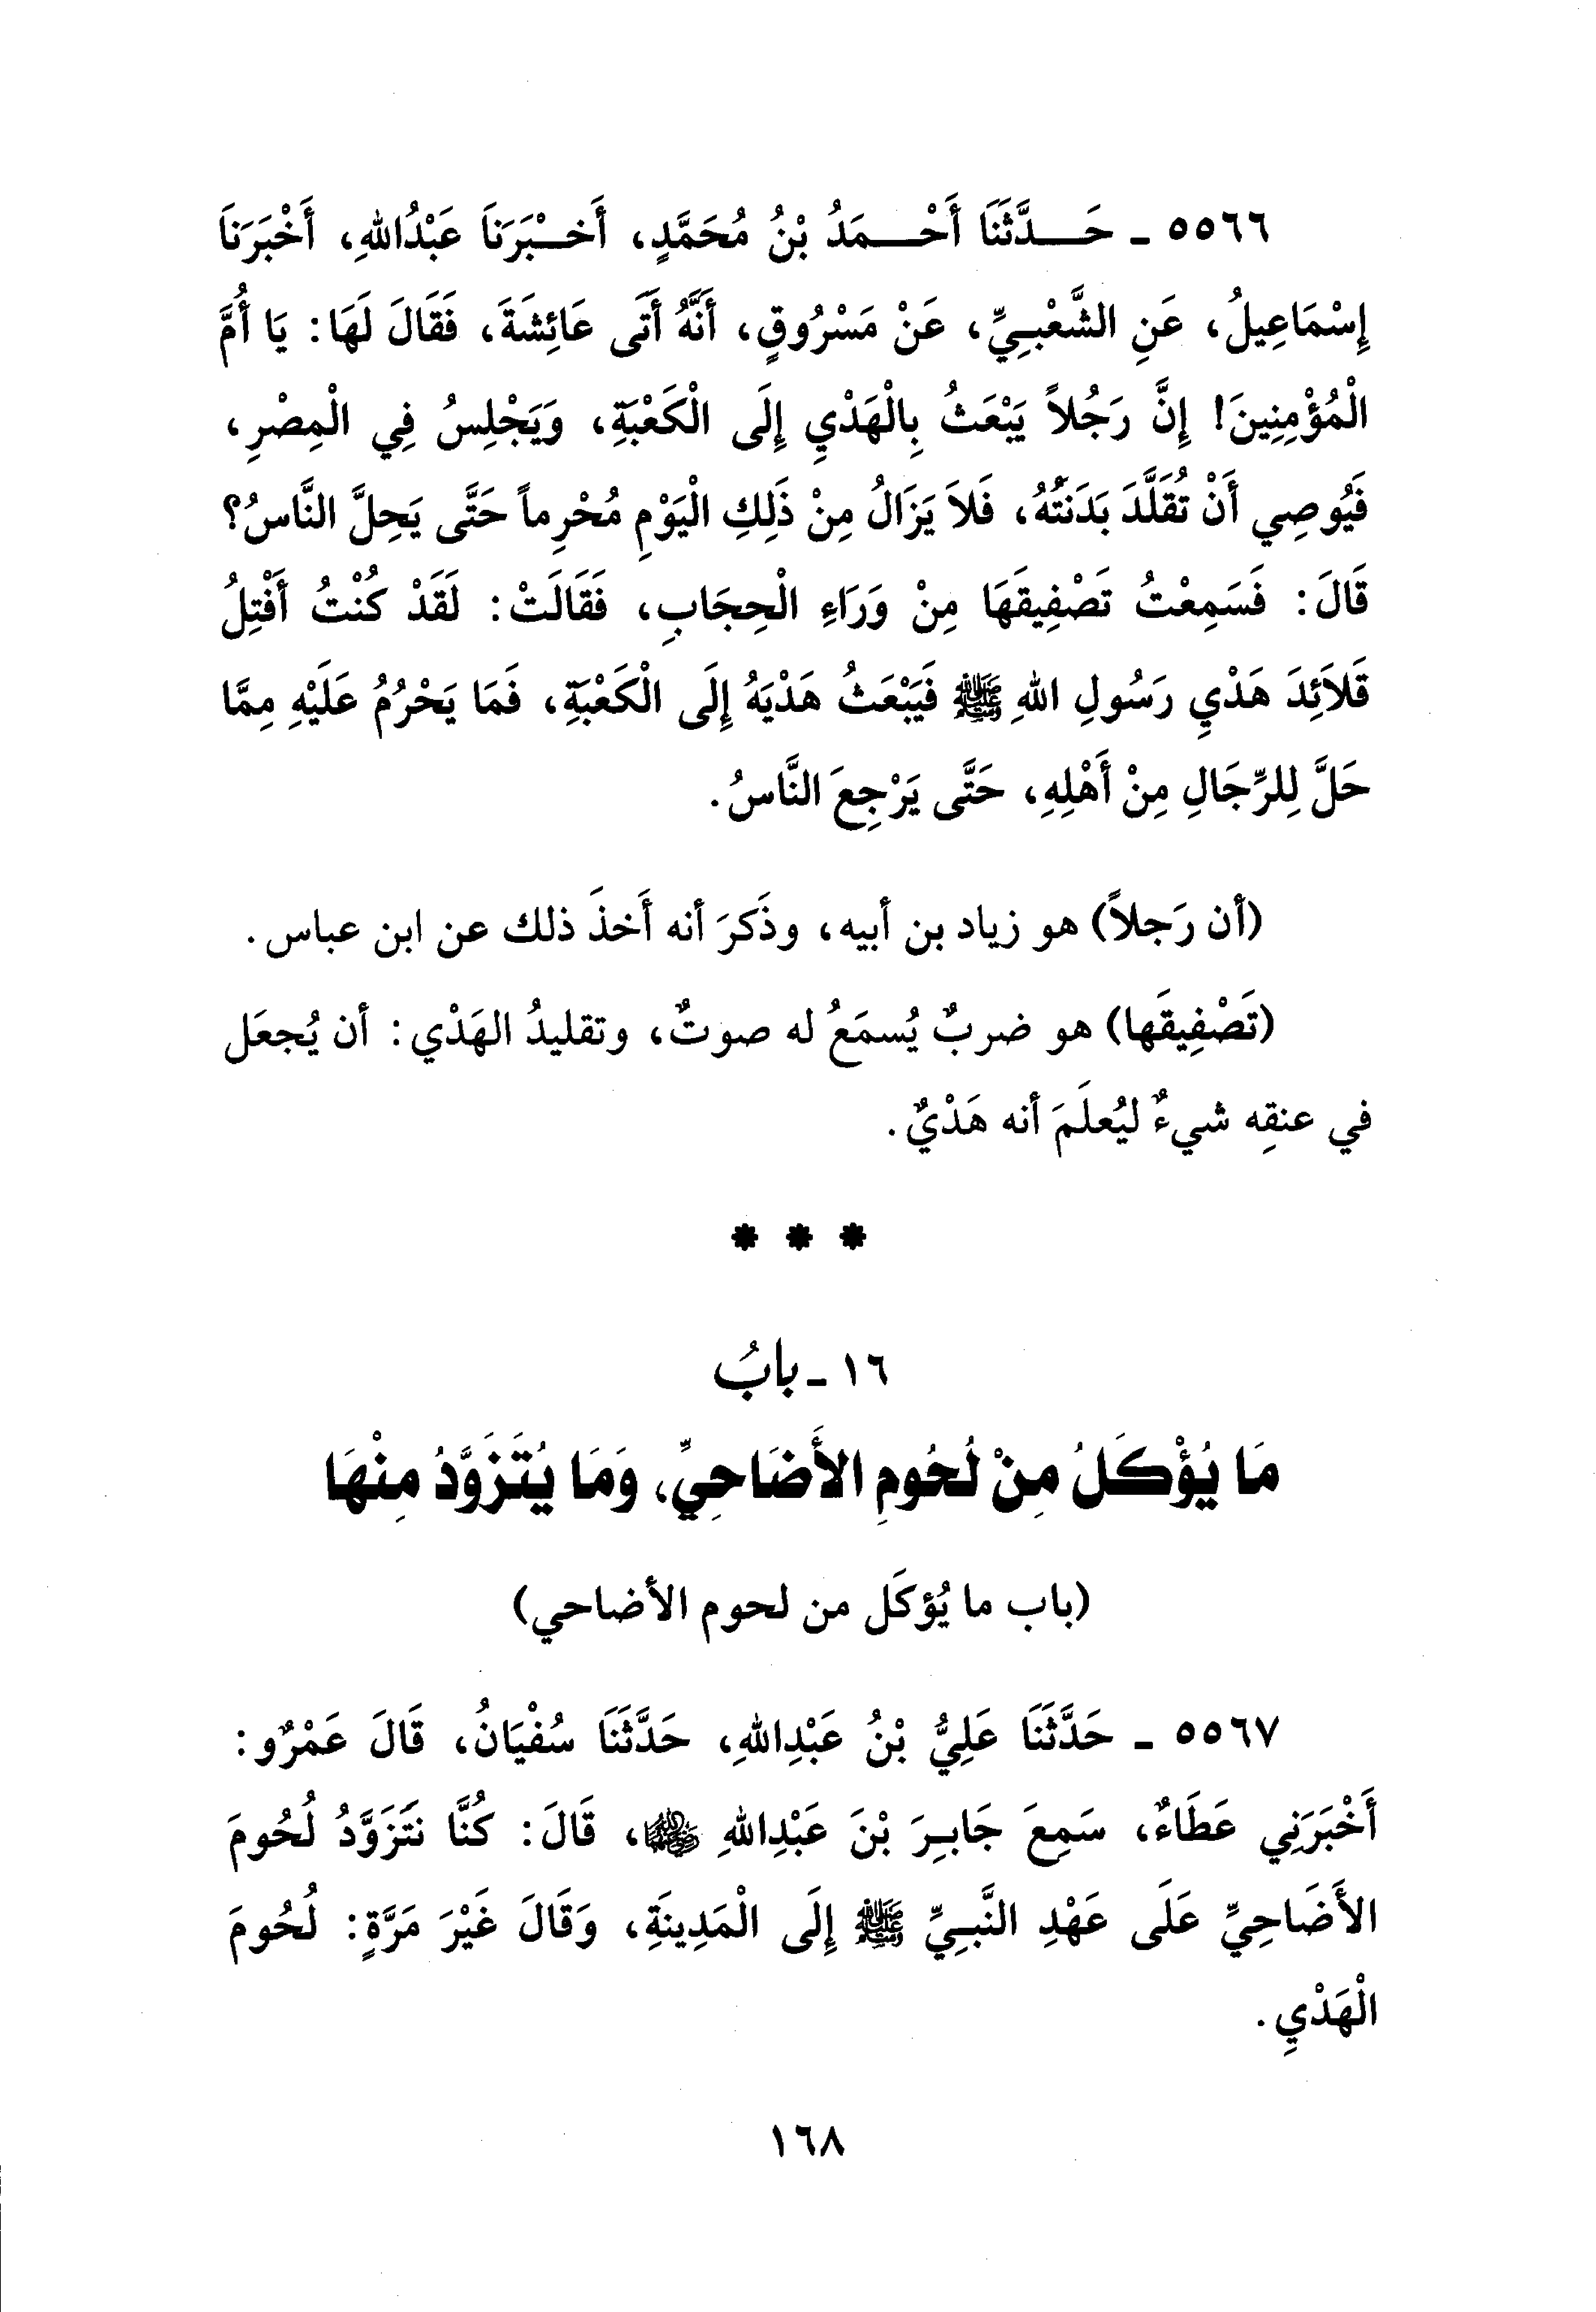 ٥٥٦٦ ـ حَـــدَّثَنَا أَحْـــمَدُ بْنُ مُحَمَّدٍ، أَخـــْبَرَنَا عَبْدُاللهِ، أَخْبَرَنَا
إِسْمَاعِيلُ، عَنِ الشَّعْبِيِّ، عَنْ مَسْرُوقٍ، أَنَّهُ أَتَى عَائِشَةَ، فَقَالَ لَهَا: يَا أُمَّ
الْمُؤْمِنِينَ! إِنَّ رَجُلاً يَبْعَثُ بِالْهَدْيِ إِلَى الْكَعْبَةِ، وَيَجْلِسُ فِي الْمِصْرِ،
فَيُوصِي أَنْ تُقَلَّدَ بَدَنَتُهُ، فَلاَ يَزَالُ مِنْ ذَلِكِ الْيَوْمِ مُحْرِماً حَتَّى يَحِلَّ النَّاسُ؟
قَالَ: فَسَمِعْتُ تَصْفِيقَهَا مِنْ وَرَاءِ الْحِجَابِ، فَقَالَتْ: لَقَدْ كُنْتُ أَفْتِلُ
قَلاَئِدَ هَدْيِ رَسُولِ اللهِ ﷺ فَيَبْعَثُ هَدْيَهُ إِلَى الْكَعْبَةِ، فَمَا يَحْرُمُ عَلَيْهِ مِمَّا
حَلَّ لِلرِّجَالِ مِنْ أَهْلِهِ، حَتَّى يَرْجِعَ النَّاسُ.
(أن رَجلاً) هو زياد بن أبيه، وذَكرَ أنه أَخذَ ذلك عن ابن عباس.
(تَصْفِيقَها) هو ضربٌ يُسمَعُ له صوتٌ، وتقليدُ الهَدْي: أن يُجعَل
في عنقِه شيءٌ ليُعلَمَ أنه هَدْيٌ.
* * *
١٦ ـ بابُ
مَا يُؤْكَلُ مِنْ لُحُومِ الأَضَاحِيِّ، وَمَا يُتَزَوَّدُ مِنْهَا
(باب ما يُؤكَل من لحوم الأضاحي)
٥٥٦٧ ـ حَدَّثَنَا عَلِيُّ بْنُ عَبْدِاللهِ، حَدَّثَنَا سُفْيَانُ، قَالَ عَمْرٌو:
أَخْبَرَنِي عَطَاءٌ، سَمِعَ جَابِرَ بْنَ عَبْدِاللهِ رضي الله عنهما، قَالَ: كُنَّا نَتَزَوَّدُ لُحُومَ
الأَضَاحِيِّ عَلَى عَهْدِ النَّبِيِّ ﷺ إِلَى الْمَدِينَةِ، وَقَالَ غَيْرَ مَرَّةٍ: لُحُومَ
الْهَدْيِ.
١٦٨